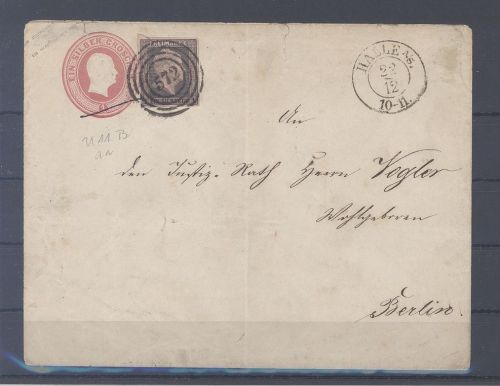 EIN SILBER GROSCH
572
HALLE A/S.
22
12
10-11.
U 11 B
An
den Justiz-Rath Herrn Vogler
Wohlgeboren
Berlin.